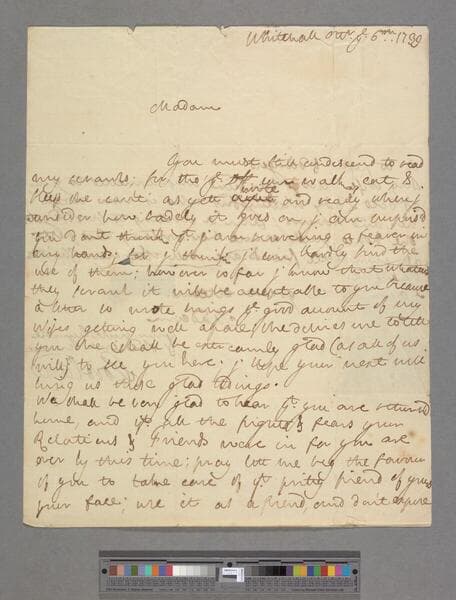 Whitehall Octr ye 6th 1739
Madam
You must still condescend to read
my scrawls; for tho ye walk, eat, &
sleep she cant as yet write and read, where
and how badly it goes on, I am surprised
you dont think yt I am a feaver in
my hands; yt I think I can hardly find the
use of them; however so far I know that whatever
they scrawl it will be acceptable to you because
a letter so wrote brings ye good account of my
Wifes getting well apace. She desires me to tell
you she shall be extreamly glad (as all of us
will) to see you here. I hope your next will
bring us those glad tidings.
We shall be very glad to hear yt you are returned
home, and yt all the frights & fears your
Relations & Friends were in for you are
over by this time; pray lett me beg the favour
of you to take care of yt pritty friend of yours
your face; use it as a friend and dont expose